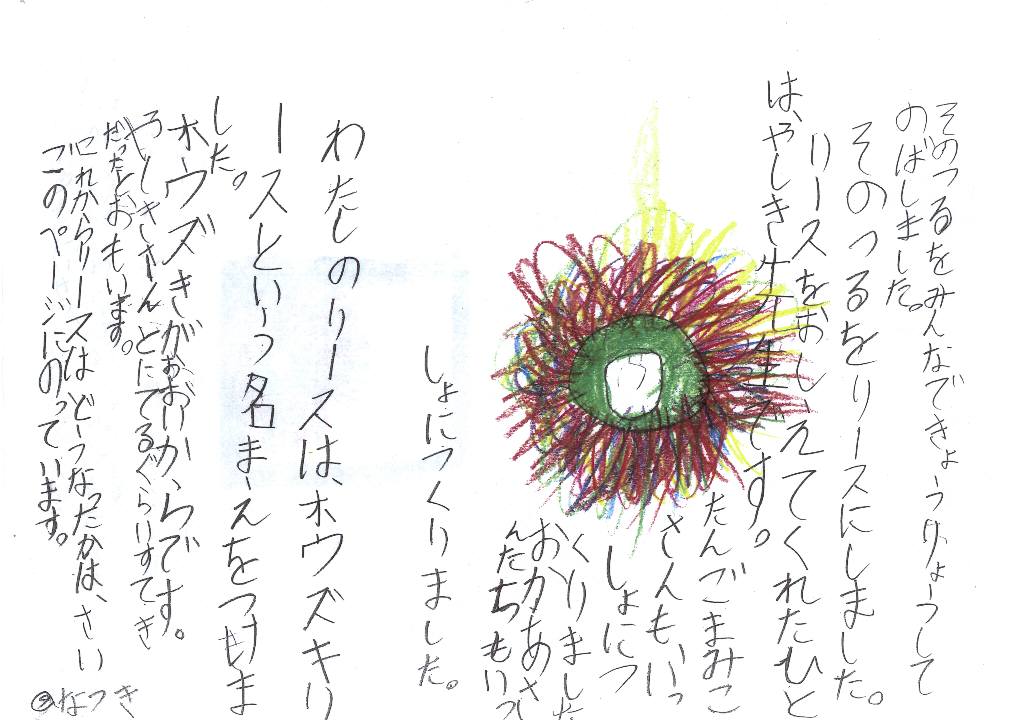 そのつるをみんなできょうりょうして
のばしました。
そのつるをリースにしました。
リースをおしえてくれたひと
は、やしき先生です。
たんごまみこ
さんもいっ
しょにつ
くりました
おかあさ
んたちもいっ
しょにつくりました。
わたしのリースは、ホウズキリ
ースという名まえをつけま
した。
ホウズきがおおいからです。
やしきさんとにてるぐらいすてき
だったとおもいます。
これからリースはどうなったかは、さい
このページにのっています。
なつき